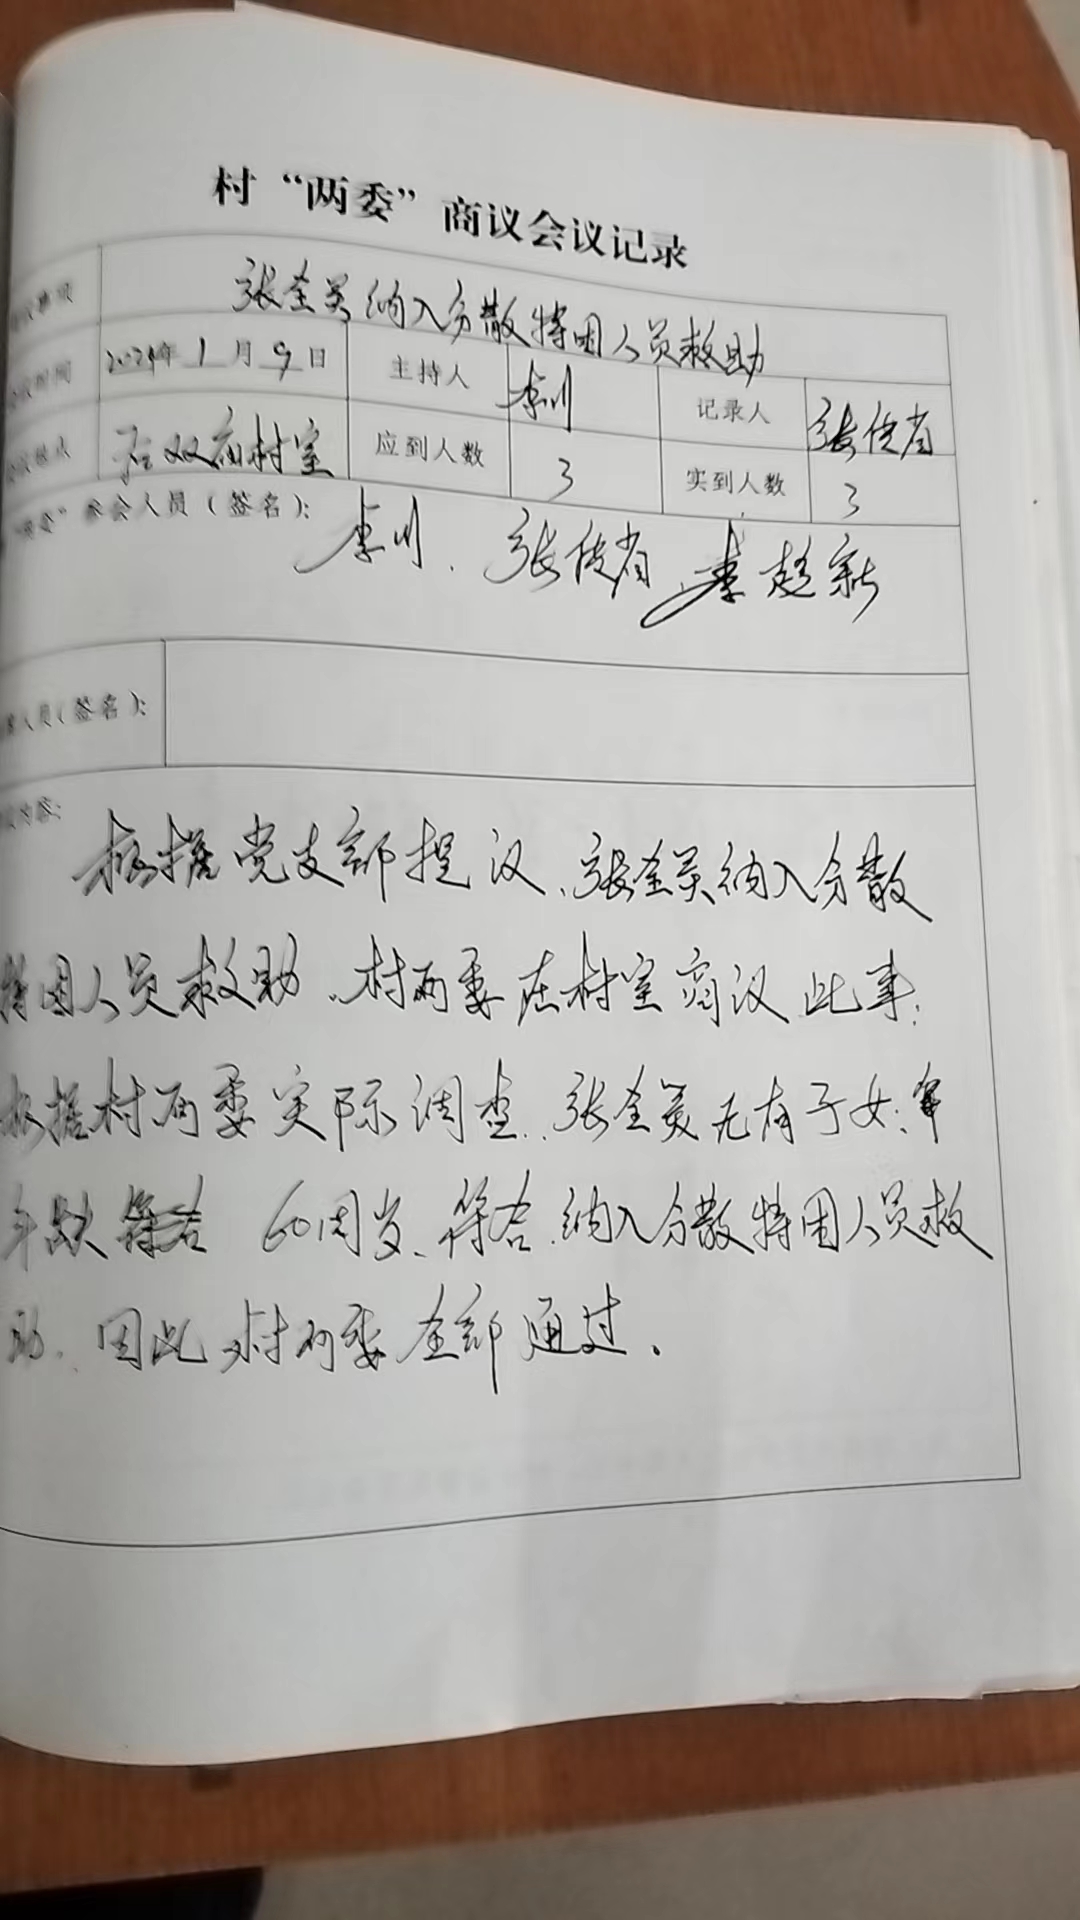 村“两委”商议会议记录
张全美纳入分散特困人员救助
2024年 1 月 9 日 主持人 李川 记录人 张传省
后双庙村室 应到人数 3 实到人数 3
“两委”参会人员(签名): 李川. 张传省 李超新
人员(签名):
内容:
根据党支部提议、张全美纳入分散
特困人员救助、村两委在村室商议此事:
根据村两委实际调查、张全美无有子女:
年龄 60周岁、符合 纳入分散特困人员救
助. 因此 村两委 全部通过.